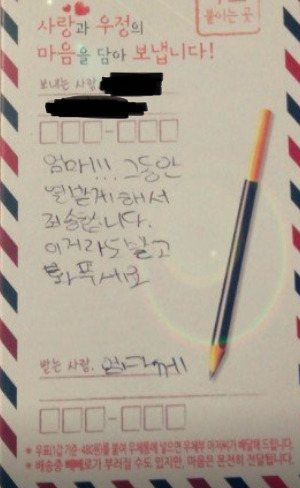 사랑과 우정의
붙이는 곳
마음을 담아 보냅니다!
보내는 사람
엄마!!! 그동안
열받게해서
죄송합니다.
이거라도 넣고
화 푸세요
받는 사람. 엄마께
* 우표(1갑 기준·480원)를 붙여 우체통에 넣으면 우체부 아저씨가 배달해 드립니다.
* 배송중 빼빼로가 부러질 수도 있지만, 마음은 온전히 전달됩니다.